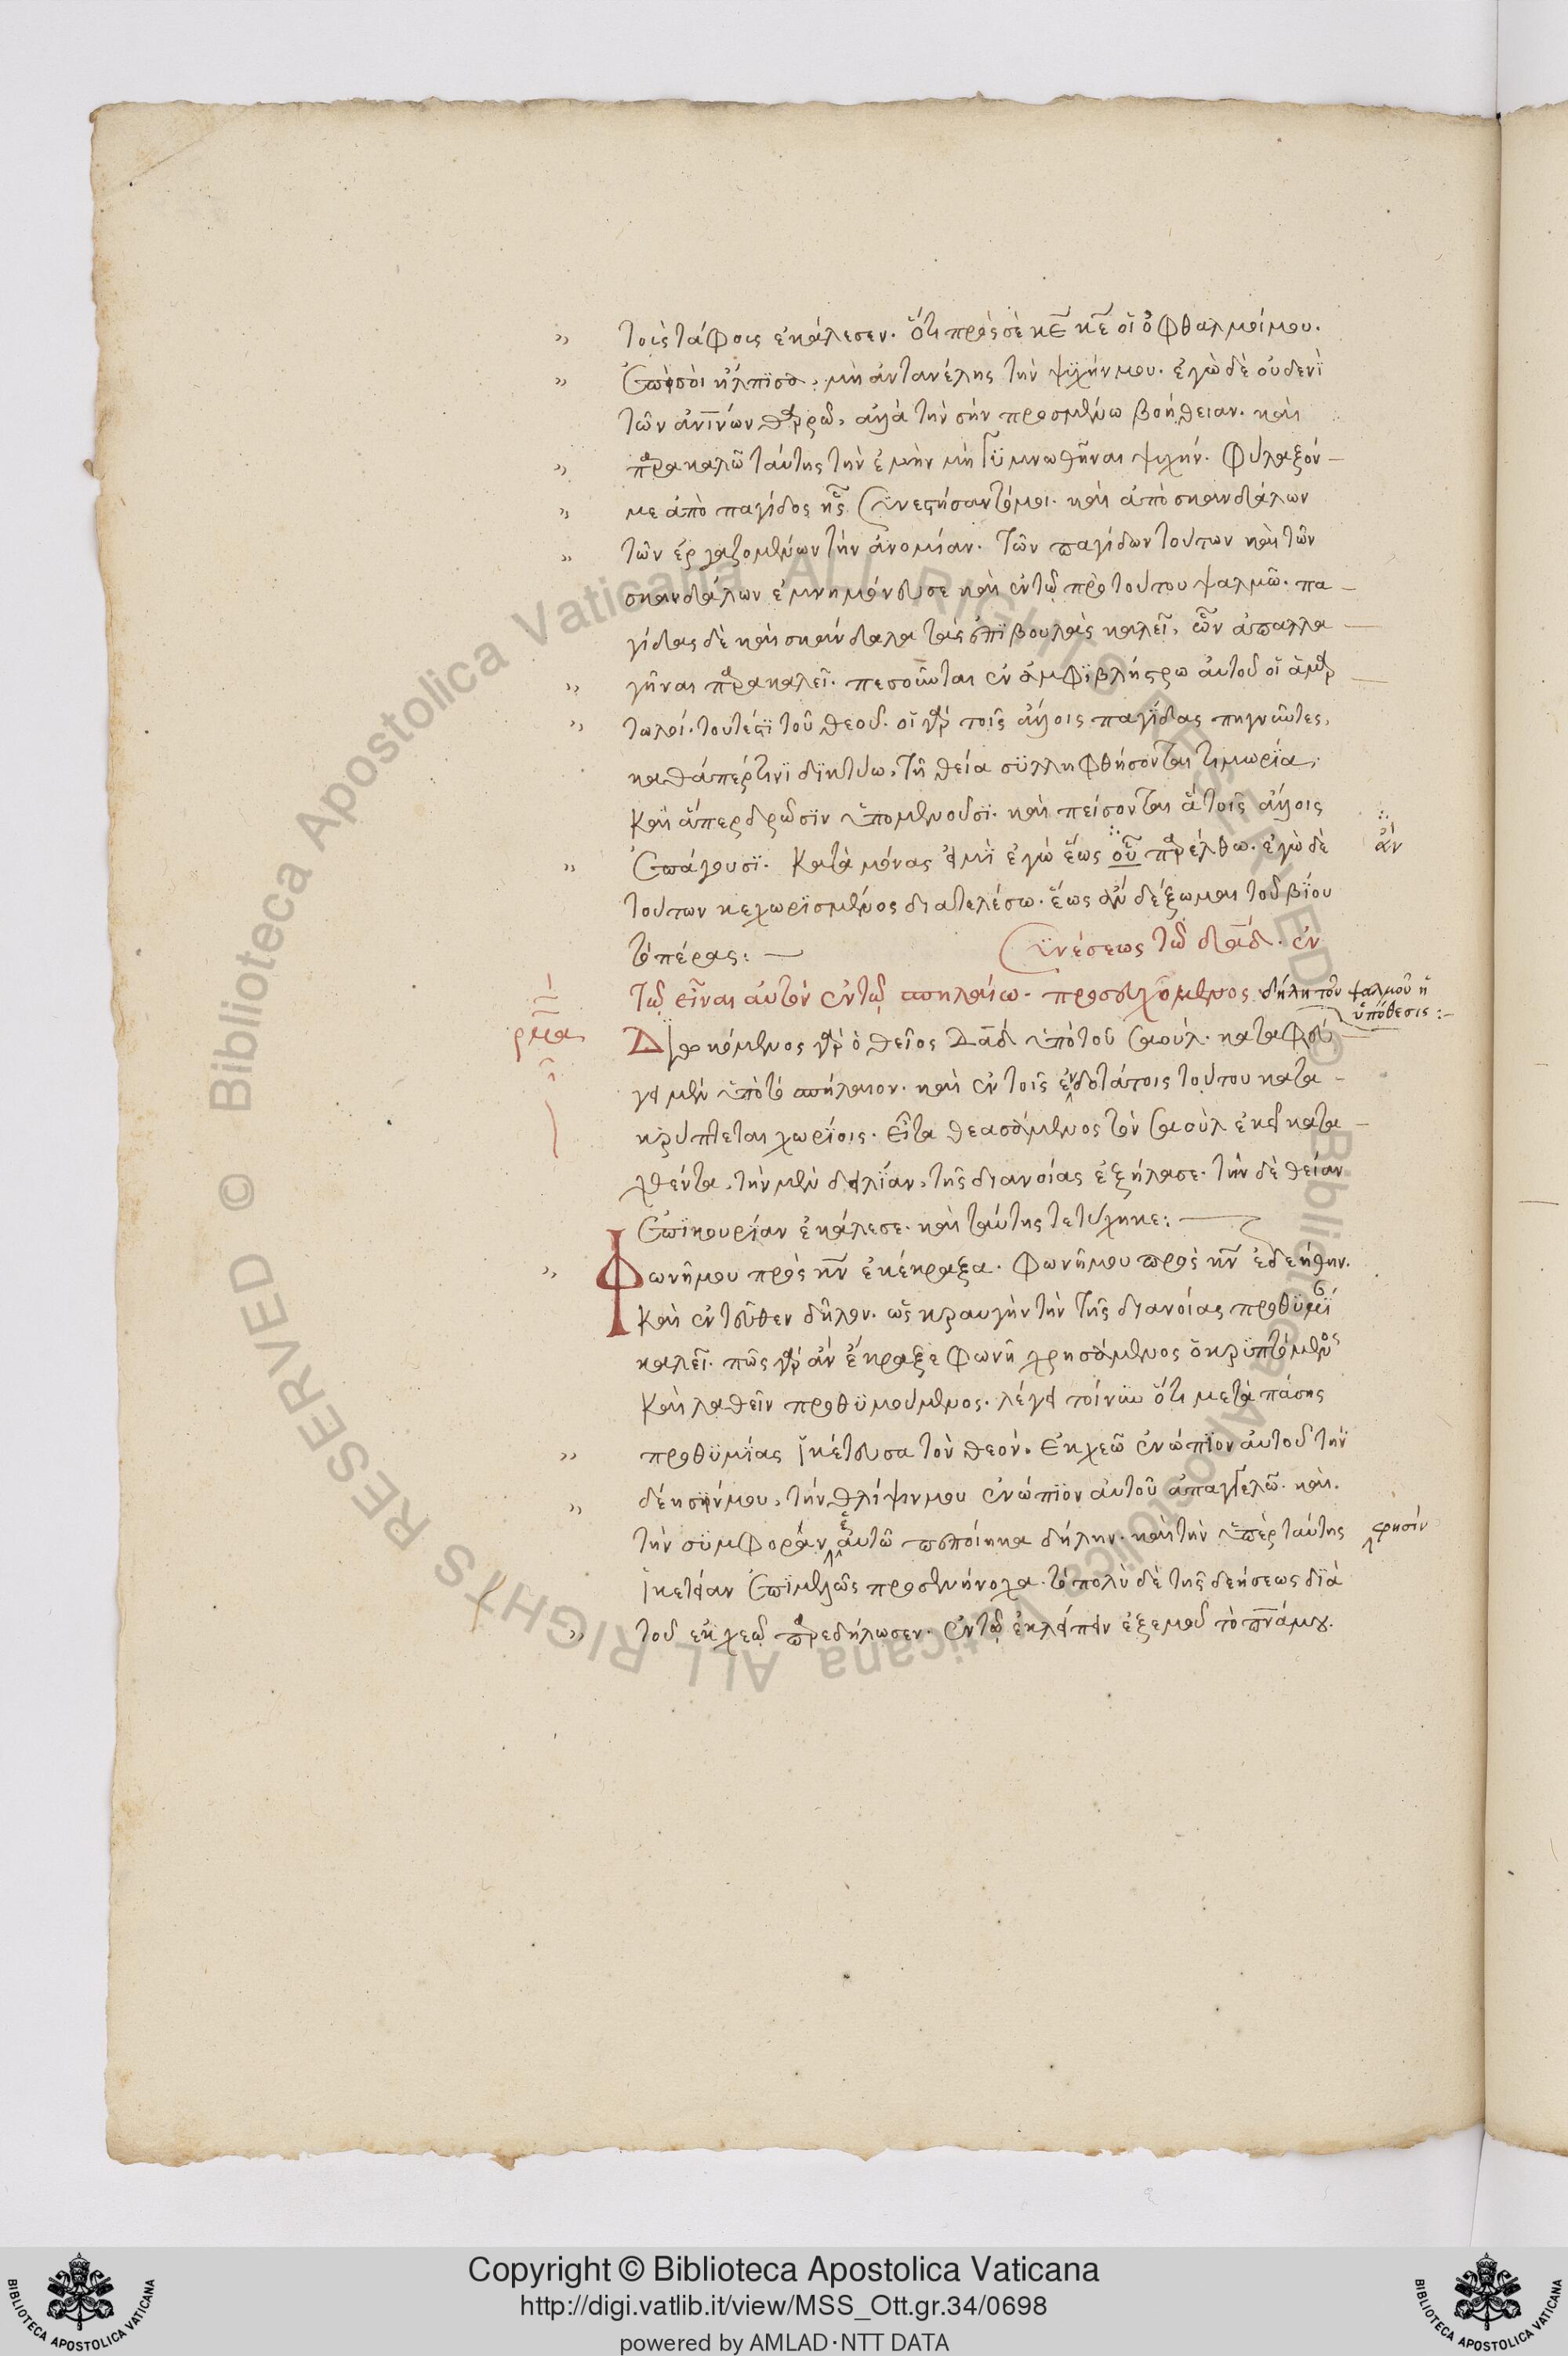 τοῖς τάφοις ἐκάλεσεν. ὅτι πρὸς σὲ κε κε οἱ ὀφθαλμοί μου.
ἐπὶ σοὶ ἤλπισα, μὴ ἀντανέλῃς τὴν ψυχήν μου. ἐγὼ δὲ οὐδενὶ
τῶν ἀνινων θαρρῶ, ἀλλὰ τὴν σὴν προσμένω βοήθειαν. καὶ
παρακαλῶ ταύτης τὴν ἐμὴν μὴ γυμνωθῆναι ψυχήν. φύλαξόν
με ἀπὸ παγίδος ἧς συνεστήσαντό μοι. καὶ ἀπὸ σκανδάλων
τῶν ἐργαζομένων τὴν ἀνομίαν. τῶν παγίδων τούτων καὶ τῶν
σκανδάλων ἐμνημόνευσε καὶ ἐν τῷ πρὸ τούτου ψαλμῷ. πα
γίδας δὲ καὶ σκάνδαλα τὰς ἐπιβουλὰς καλεῖ, ὧν ἀπαλλα
γῆναι παρακαλεῖ. πεσοῦνται ἐν ἀμφιβλήστρω αὐτοῦ οἱ ἁμαρ
τωλοί. τουτέστι τοῦ θεοῦ. οἱ γὰρ τοῖς ἄλλοις παγίδας πηγνῦντες,
καθάπέρ τινι δικτύω, τῆ θεία συλληφθήσονται τιμωρία,
καὶ ἅπερ δρῶσιν ὑπομενοῦσι. καὶ πείσονται ἃ τοῖς ἄλλοις
ἐπάγουσι. κατὰ μόνας εἰμὶ ἐγὼ ἕως οὗ παρέλθω. ἐγὼ δὲ
ἂν
τούτων κεχωρισμένος διατελέσω. ἕως ἂν δέξωμαι τοῦ βίου
τὸ πέρας:
συνέσεως τῷ δαδ. ἐν
τῷ εἶναι αὐτὸν ἐν τῷ σπηλαίω. προσευχόμενος δήλη τοῦ ψαλμοῦ ἡ
ὑπόθεσις:
ρμα
Διωκόμενος γὰρ ὁ θεῖος Δαδ ὑπὸ τοῦ σαούλ. καταφεύ
γει μὲν ὑπὸ τὸ σπήλαιον. καὶ ἐν τοῖς ἐνδοτάτοις τούτου κατα
κρύπτεται χωρίοις. εἶτα θεασάμενος τὸν σαοὺλ ἐκεῖ κατα
χθέντα, τὴν μὲν δειλίαν, τῆς διανοίας ἐξήλασε. τὴν δὲ θείαν
ἐπικουρίαν ἐκάλεσε. καὶ ταύτης τετύχηκε:
Φωνῆ μου πρὸς κν ἐκέκραξα. φωνῆ μου πρὸς κν ἐδεήθην.
καὶ ἐντεῦθεν δῆλον. ὡς κραυγὴν τὴν τῆς διανοίας προθυμί
καλεῖ. πῶς γὰρ ἂν ἔκραξε φωνῆ χρησάμενος ὁ κρυπτόμενος
καὶ λαθεῖν προθυμούμενος. λέγει τοίνυν ὅτι μετὰ πάσης
προθυμίας ἱκέτευσα τὸν θεόν. ἐκχεῶ ἐνώπιον αὐτοῦ τὴν
δέησίν μου, τὴν θλίψιν μου ἐνώπιον αὐτοῦ ἀπαγγελῶ. καὶ
τὴν συμφορὰν ἑαυτῶ πεποίηκα δήλην. καὶ τὴν ὑπὲρ ταύτης φησίν
ἱκετείαν ἐπιμελῶς προσενήνοχα. τὸ πολὺ δὲ τῆς δεήσεως διὰ
τοῦ ἐκχεῶ παρεδήλωσεν. ἐν τῷ ἐκλείπειν ἐξ ἐμοῦ τὸ πνά μου.
© Biblioteca Apostolica Vaticana ALL RIGHTS RESERVED
© Biblioteca Apostolica Vaticana ALL RIGHTS RESERVED
Copyright © Biblioteca Apostolica Vaticana
http://digi.vatlib.it/view/MSS_Ott.gr.34/0698
powered by AMLAD·NTT DATA
BIBLIOTECA APOSTOLICA VATICANA
BIBLIOTECA APOSTOLICA VATICANA